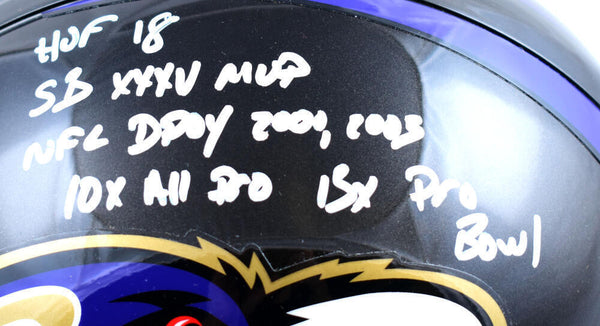 HOF 18
SB XXXV MVP
NFL DPOY 2000, 2003
10x All Pro 13x Pro
Bowl